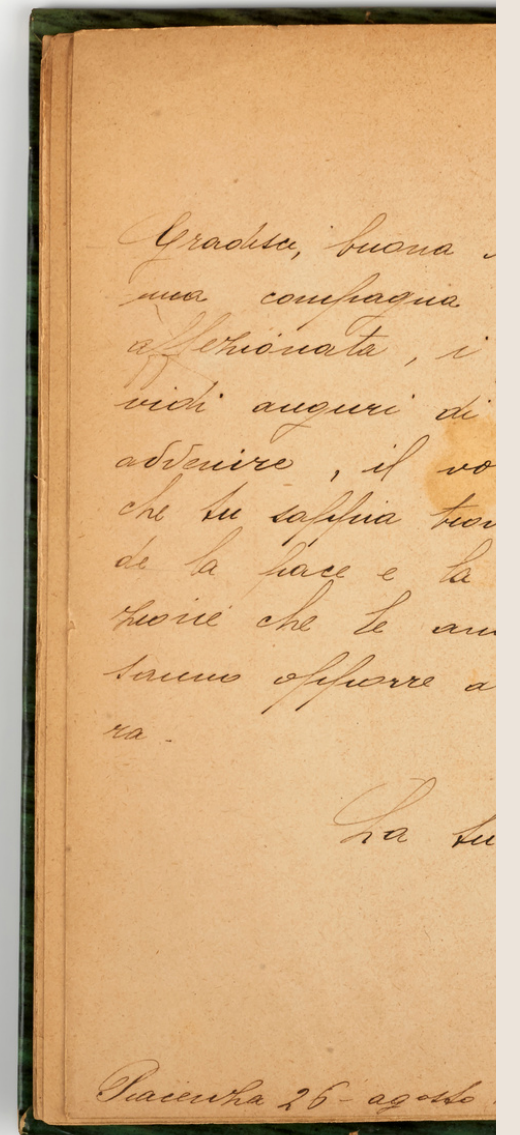 Gradisci, buona
una compagna
affezionata, i
vidi auguri di
avvenire, il vo
che tu sappia trov
de la pace e la
zione che le an
sanno opporre a
ra.
La tu
Piacenza 26 - agosto